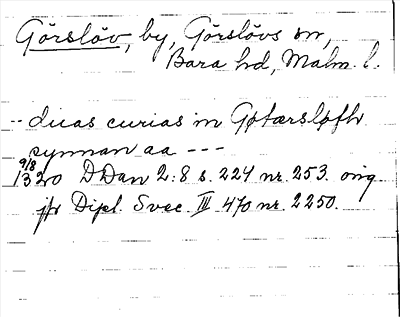 Görslöv, by, Görslövs sn,
Bara hd, Malm. l.
-- duas curias in Gøtærsløfh
synnan aa ---
9/8
1320 DDan 2:8 s. 224 nr. 253. orig.
jfr Dipl. Svec. III 470 nr. 2250.